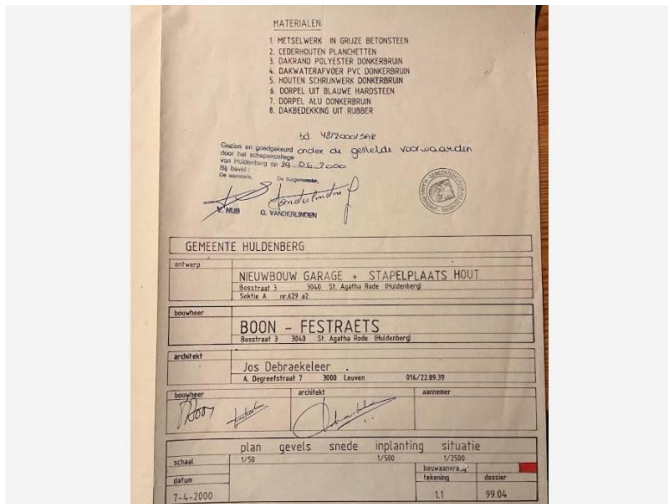 MATERIALEN
1. METSELWERK IN GRIJZE BETONSTEEN
2. CEDERHOUTEN PLANCHETTEN
3. DAKRAND POLYESTER DONKERBRUIN
4. DAKWATERAFVOER PVC DONKERBRUIN
5. HOUTEN SCHRIJNWERK DONKERBRUIN
6. DORPEL UIT BLAUWE HARDSTEEN
7. DORPEL ALU DONKERBRUIN
8. DAKBEDEKKING UIT RUBBER
bd 48/2000/SAR
Gezien en goedgekeurd onder de gestelde voorwaarden
door het schepencollege
van Huldenberg op 29.06.2000
Bij bevel:
De secretaris, De burgemeester,
V. NIJS G. VANDERLINDEN
GEMEENTE HULDENBERG
ontwerp
NIEUWBOUW GARAGE + STAPELPLAATS HOUT
Bosstraat 3 3040 St. Agatha Rode (Huldenberg)
Sektie A nr.629 a2
bouwheer
BOON - FESTRAETS
Bosstraat 3 3040 St. Agatha Rode (Huldenberg)
architekt
Jos Debraekeleer
A. Degreefstraat 7 3000 Leuven 016/22.89.39
bouwheer architekt aannemer
plan gevels snede inplanting situatie
schaal 1/50 1/500 1/2500
bouwaanvraag
datum tekening dossier
7-4-2000 1.1 99.04